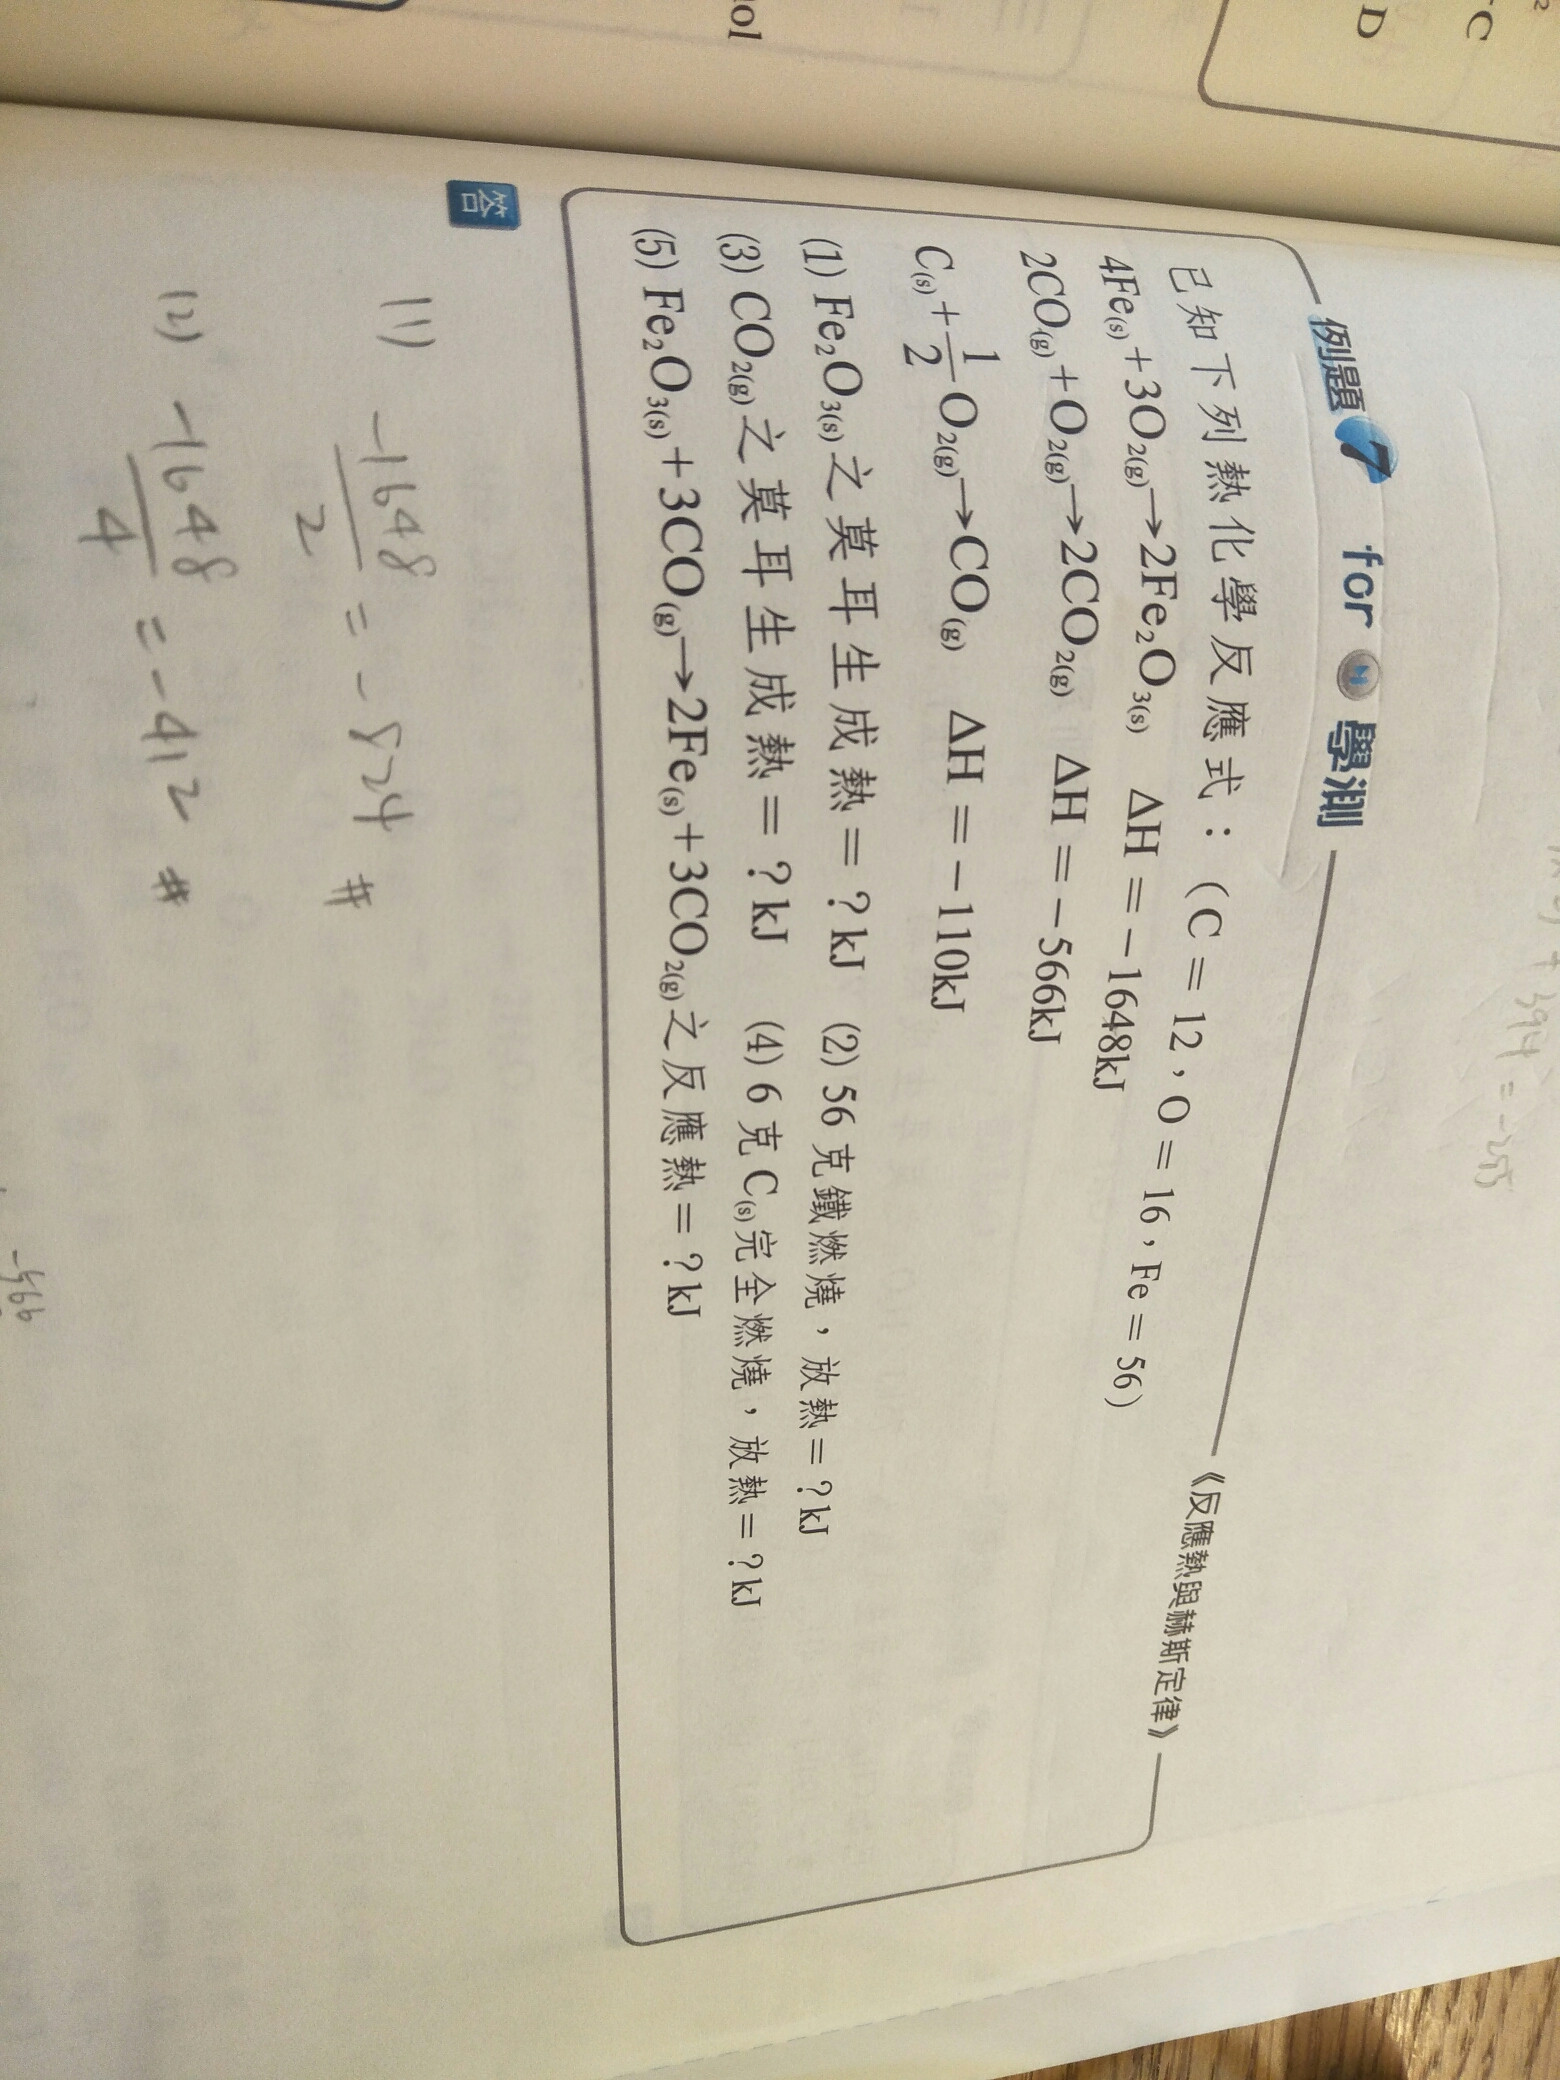 C
D
ol
例題7 for 學測 《反應熱與赫斯定律》
已知下列熱化學反應式：(C＝12，O＝16，Fe＝56)
4Fe(s)+3O2(g)→2Fe2O3(s) ΔH＝−1648kJ
2CO(g)+O2(g)→2CO2(g) ΔH＝−566kJ
C(s)+1/2O2(g)→CO(g) ΔH＝−110kJ
(1) Fe2O3(s)之莫耳生成熱＝？kJ (2) 56克鐵燃燒，放熱＝？kJ
(3) CO2(g)之莫耳生成熱＝？kJ (4) 6克C(s)完全燃燒，放熱＝？kJ
(5) Fe2O3(s)+3CO(g)→2Fe(s)+3CO2(g)之反應熱＝？kJ
答
(1) -1648/2 = -824 #
(2) -1648/4 = -412 #
-566